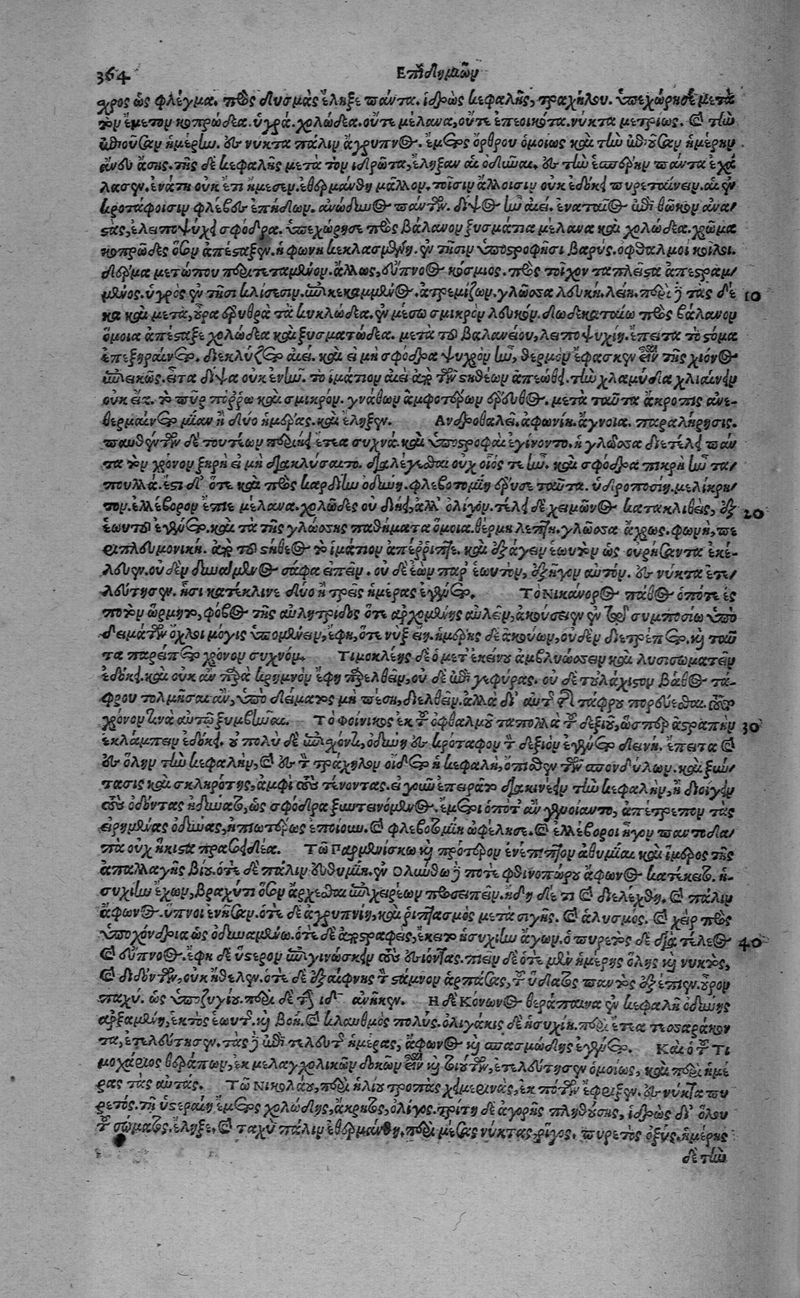 364 Επιδημιῶν
χρος ὡς φλέγμα. πρὸς δυσμὰς ἔληξε πάντα. ἱδρὼς κεφαλῆς, τραχήλου. ὑπεχώρησε μετὰ
τὸν ἔμετον κοπρώδεα. ὑγρά. χολώδεα. οὔτε μέλανα, οὔτε ἐπεοικότα. νύκτα μετρίως. καὶ τὴν
ἐπιοῦσαν ἡμέρην. ἐν νυκτὶ πάλιν ἄγρυπνος. ἔμετος ὄρθρου ὁμοίως καὶ τὴν ἐπιοῦσαν ἡμέρην
ἄνευ ἄσης. τῆς δὲ κεφαλῆς μετὰ τὸν ἱδρῶτα, ἔληξαν αἱ ὀδύναι. ἐν τὴν ἑσπέρην πάντα ἐχά
λασεν. ἐνάτῃ οὐκ ἔτι ἤμεσεν. ἐθερμάνθη μᾶλλον. τοῖσιν ἄλλοισιν οὐκ ἐδόκει πυρεταίνειν. αἱ ἐν
κροτάφοισιν φλέβες ἐπήδων. ἀνώδυνος πάντων. δίψος ἦν ἀεί. ἐναταῖος ἐπὶ θῶκον ἀνα/
στὰς, ἐλειποψύχει σφόδρα. ὑπεχώρησε πρὸς βάλανον ξυσμάτια μέλανα καὶ χολώδεα. χρῶμα
κοπρῶδες ὅσον ἀπέσταξεν. ἡ φωνὴ κεκλασμένη. ἐν τῇσιν ὑποστροφῇσι βαρύς. ὀφθαλμοὶ κοῖλοι.
δέρμα μετώπου περιτεταμένον. ἄλλως, εὔπνοος κόσμιος. πρὸς τοῖχον τὰ πλεῖστα ἀπεστραμ/
μένος. ὑγρὸς ἐν τῇσι κλίσεσιν. ἐπικεκαμμένος. ἀτρεμίζων. γλῶσσα λευκὴ. λείη. περὶ δὲ τὰς δέ 10
κα καὶ μετὰ, οὖρα ἐρυθρὰ τὰ κυκλώδεα. ἐν μέσῳ σμικρὸν λευκόν. δωδεκαταίῳ πρὸς βάλανον
ὅμοια ἀπέσταξε χολώδεα καὶ ξυσματώδεα. μετὰ τοῦ βαλανείου, λειποψυχίη. ἔπειτα τὸ στόμα
ἐπεξηραίνετο. διεκλύζετο ἀεί. καὶ εἰ μὴ σφόδρα ψυχρὸν ἦν, θερμὸν ἔφασκεν εἶναι τῆς χιόνος
ἐπιεικῶς. ἔτα δίψα οὐκ ἐνῆν. τὸ ἱμάτιον ἀεὶ ἀπὸ τῶν στηθέων ἀπεώθει. τὴν χλαμύδα χλιαίνειν
οὐκ εἴα. τὸ πῦρ πόρρω καὶ σμικρόν. γνάθων ἀμφοτέρων ἔρευθος. μετὰ ταῦτα ἀκροπις ἀνε-
θερμαίνετο μίαν ἢ δύο ἡμέρας. καὶ ἔληξεν. Ανδροθαλεῖ. ἀφωνίη. ἄγνοια. παραλήρησις.
παυθέντων δὲ τουτέων περιῄει ἔτεα συχνά. καὶ ὑποστροφαὶ ἐγίνοντο. ἡ γλῶσσα διετέλει πάν
τα τὸν χρόνον ξηρὴ εἰ μὴ διακλύσαιτο. διαλέγεσθαι οὐχ οἷός τε ἦν. καὶ σφόδρα πικρὴ ἦν τὰ
πουλλά. ἔστι δ᾽ ὅτε καὶ πρὸς καρδίην ὀδύνη. φλεβοτομίη ἔρυσε ταῦτα. ὑδροποσίη. μελίκρη/
τον. ἑλλέβορον ἔπιε μέλανα. χολῶδες οὐ διῄει, ἀλλ᾽ ὀλίγον. τέλει δὲ χειμῶνος κατακλιθεὶς, ἐξ 20
ἑωυτοῦ ἐγένετο. καὶ τὰ τῆς γλώσσης παθήματα ὅμοια. θέρμη λεπτή. γλῶσσα ἄχρως. φωνὴ, πε
ριπλευμονική. ἀπὸ τοῦ στήθεος τὸ ἱμάτιον ἀπέρριπτε. καὶ ἐξάγειν ἑωυτὸν ὡς οὐρήσαντα ἐκέ-
λευεν. οὐδὲν δυνάμενος σάφα εἰπεῖν. οὐδὲ ἐᾶν παρ᾽ ἑωυτὸν, ἐξῆγον αὐτόν. ἐν νύκτα ἐτε/
λεύτησεν. ᾗσι κατέκλινε δύο ἢ τρεῖς ἡμέρας ἐγένετο. Τὸ Νικάνορος πάθος ὁπότε ἐς
ποτὸν ὥρμητο, φόβος τῆς αὐλητρίδος ὅτε ἀρχομένης αὐλεῖν, ἀκούσειεν ἐν τῷ συμποσίῳ ὑπὸ
δειμάτων ὄχλοι μόγις ὑπομένειν, ἔφη, ὅτε νὺξ εἴη. ἡμέρης δὲ ἀκούων, οὐδὲν διετρέπετο. καὶ ταῦ
τα παρείπετο χρόνον συχνόν. Τιμοκλέης δὲ ὁ μετ᾽ ἐκείνου ἀμβλυώσσειν καὶ λυσισωματεῖν
ἐδόκει. καὶ οὐκ ἂν παρὰ κρημνὸν ἔφη παρελθεῖν, οὐδὲ ἐπὶ γεφύρας. οὐδὲ τοὐλάχιστον βάθος τά-
φρου τολμῆσαι ἂν, ὑπὸ δείματος μὴ πέσῃ, διελθεῖν. ἀλλὰ δι᾽ αὐτῆς τῆς τάφρου πορεύεσθαι. τοῦτο
χρόνον τινὰ αὐτῷ ξυμβῆναι. Τὸ Φοίνικος ἐκ τοῦ ὀφθαλμοῦ τὰ πολλὰ τοῦ δεξιοῦ, ὥσπερ ἀστραπὴν 30
ἐκλάμπειν ἐδόκει. οὐ πολὺ δὲ ἐπισχόντι, ὀδύνη ἐν κρόταφον τὸν δεξιὸν ἐγένετο δεινή. ἔπειτα καὶ
ἐν ὅλην τὴν κεφαλὴν, καὶ ἐν τὸν τράχηλον οἰδεῖτο ἡ κεφαλὴ, ὄπισθεν τῶν σπονδύλων. καὶ ξύν/
τασις καὶ σκληρότης, ἀμφὶ τοὺς τένοντας. εἰ γοῦν ἐπειρᾶτο διακινέειν τὴν κεφαλὴν, ἢ διοίγειν
τοὺς ὀδόντας ἠδυνατο, ὡς σφόδρα ξυντεινόμενος. ἔμετοι ὁπότ᾽ ἂν γενοίατο, ἀπέτρεπον τὰς
εἰρημένας ὀδύνας, ἠπιωτέρως ἐποίουν. καὶ φλεβοτομίη ὠφέλησε. καὶ ἑλλέβοροι ἦγον παντοδα/
πὰ οὐχ ἥκιστα πρασοειδέα. Τῷ Παρμενίσκῳ καὶ πρότερον ἐνέπιπτον ἀθυμίαι. καὶ ἵμερος τῆς
ἀπαλλαγῆς βίου. ὁτὲ δὲ πάλιν εὐθυμίη. ἐν Ολύνθῳ ποτὲ φθινοπώρου ἄφωνος κατέκειτο. ἡ-
συχίην ἔχων, βραχύ τι ὅσον ἄρχεσθαι ἐπιχειρέων προσειπεῖν. ἤδη δέ τι καὶ διελέχθη. καὶ πάλιν
ἄφωνος. ὕπνοι ἐνῆσαν. ὁτὲ δὲ ἀγρυπνίη, καὶ ῥιπτασμὸς μετὰ σιγῆς. καὶ ἀλυσμὸς. καὶ χεὶρ πρὸς
ὑποχόνδρια ὡς ὀδυναμένῳ. ὁτὲ δὲ ἀποστραφεὶς, ἔκειτο ἡσυχίην ἄγων. ὁ πυρετὸς δὲ διὰ τέλεος 40
καὶ εὔπνοος. ἔφη δὲ ὕστερον ἐπιγινώσκειν τοὺς ἐσιόντας. πιεῖν δὲ ὁτὲ μὲν ἡμέρης ὅλης καὶ νυκτὸς,
καὶ διδόντων, οὐκ ἤθελεν. ὁτὲ δὲ ἐξαίφνης τὸν στάμνον ἁρπάσας, τοῦ ὕδατος παντὸς ἐξέπιεν. οὖρον
παχὺ. ὡς ὑποζυγίου. περὶ δὲ τὰς ιδ᾽ ἀνῆκεν. Η δὲ Κόνωνος θεράπαινα ἐν κεφαλῇ ὀδύνης
ἀρξαμένη, ἐκτὸς ἑωυτῆς. καὶ βοὴ. καὶ κλαυθμὸς πολύς. ὀλιγάκις δὲ ἡσυχίη. περὶ ἔτεα τεσσαράκον
τα, ἐτελεύτησεν. τὰς δὲ ἐπὶ τελευτῇ ἡμέρας, ἄφωνος καὶ σπασμώδης ἐγένετο. Καὶ ὁ τοῦ Τι
μοχάριος θεράπων, ἐκ μελαγχολικῶν δοκέων εἶναι καὶ τοιούτων, ἐτελεύτησεν ὁμοίως, καὶ περὶ ἡμέ
ρας τὰς αὐτάς. Τῷ Νικολάῳ, περὶ ἡλίου τροπὰς χειμερινὰς, ἐκ πότων ἔφριξεν. ἐν νύκτα πυ
ρετός. τῇ ὑστεραίῃ ἔμετος χολώδης, ἄκρητος, ὀλίγος. τρίτῃ δὲ ἀγορῆς πληθούσης, ἱδρὼς δι᾽ ὅλου
τοῦ σώματος. ἔληξε. καὶ ταχὺ πάλιν ἐθερμάνθη. περὶ μέσας νύκτας, ῥῖγος. πυρετὸς ὀξύς. ἡμέρης
δὲ τὴν